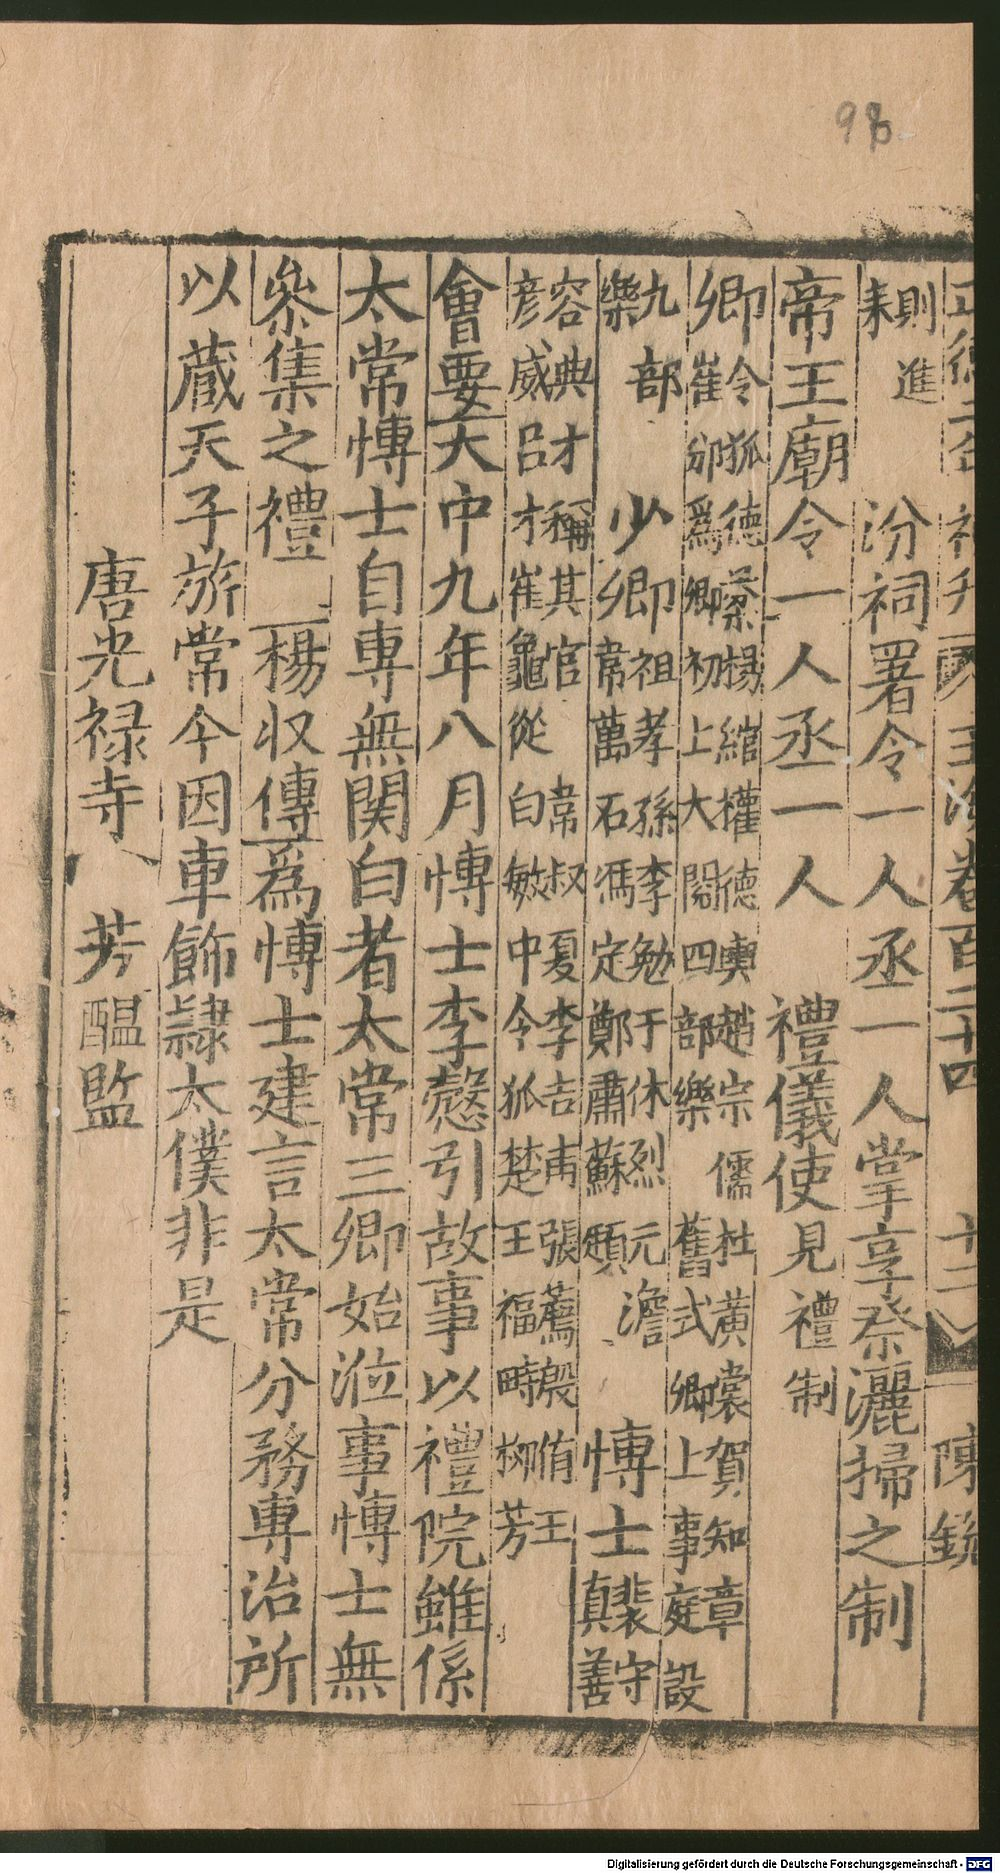 98
正德二年 玉海卷百二十四 十二 陳銳
則進
耒 汾祠署令一人丞一人掌享祭灑掃之制
帝王廟令一人丞一人 禮儀使見禮制
卿令狐德棻楊綰權德輿趙宗儒杜黃裳賀知章
崔邠爲卿初上大閱四部樂 舊式卿上事庭設
九部 少卿祖孝孫李勉于休烈元澹 博士裴守
樂 韋萬石馮定鄭肅蘇頲 真善
容典才稱其官 韋叔夏李吉甫張薦殷侑王
彥威呂才崔龜從 白敏中令狐楚王福畤柳芳
會要大中九年八月愽士李慤引故事以禮院雖係
太常愽士自專無関白者太常三卿始涖事愽士無
叅集之禮 楊収傳爲愽士建言太常分務專治所
以蔵天子旂常今因車飾隷太僕非是
唐光禄寺 芳醖監
Digitalisierung gefördert durch die Deutsche Forschungsgemeinschaft - DFG